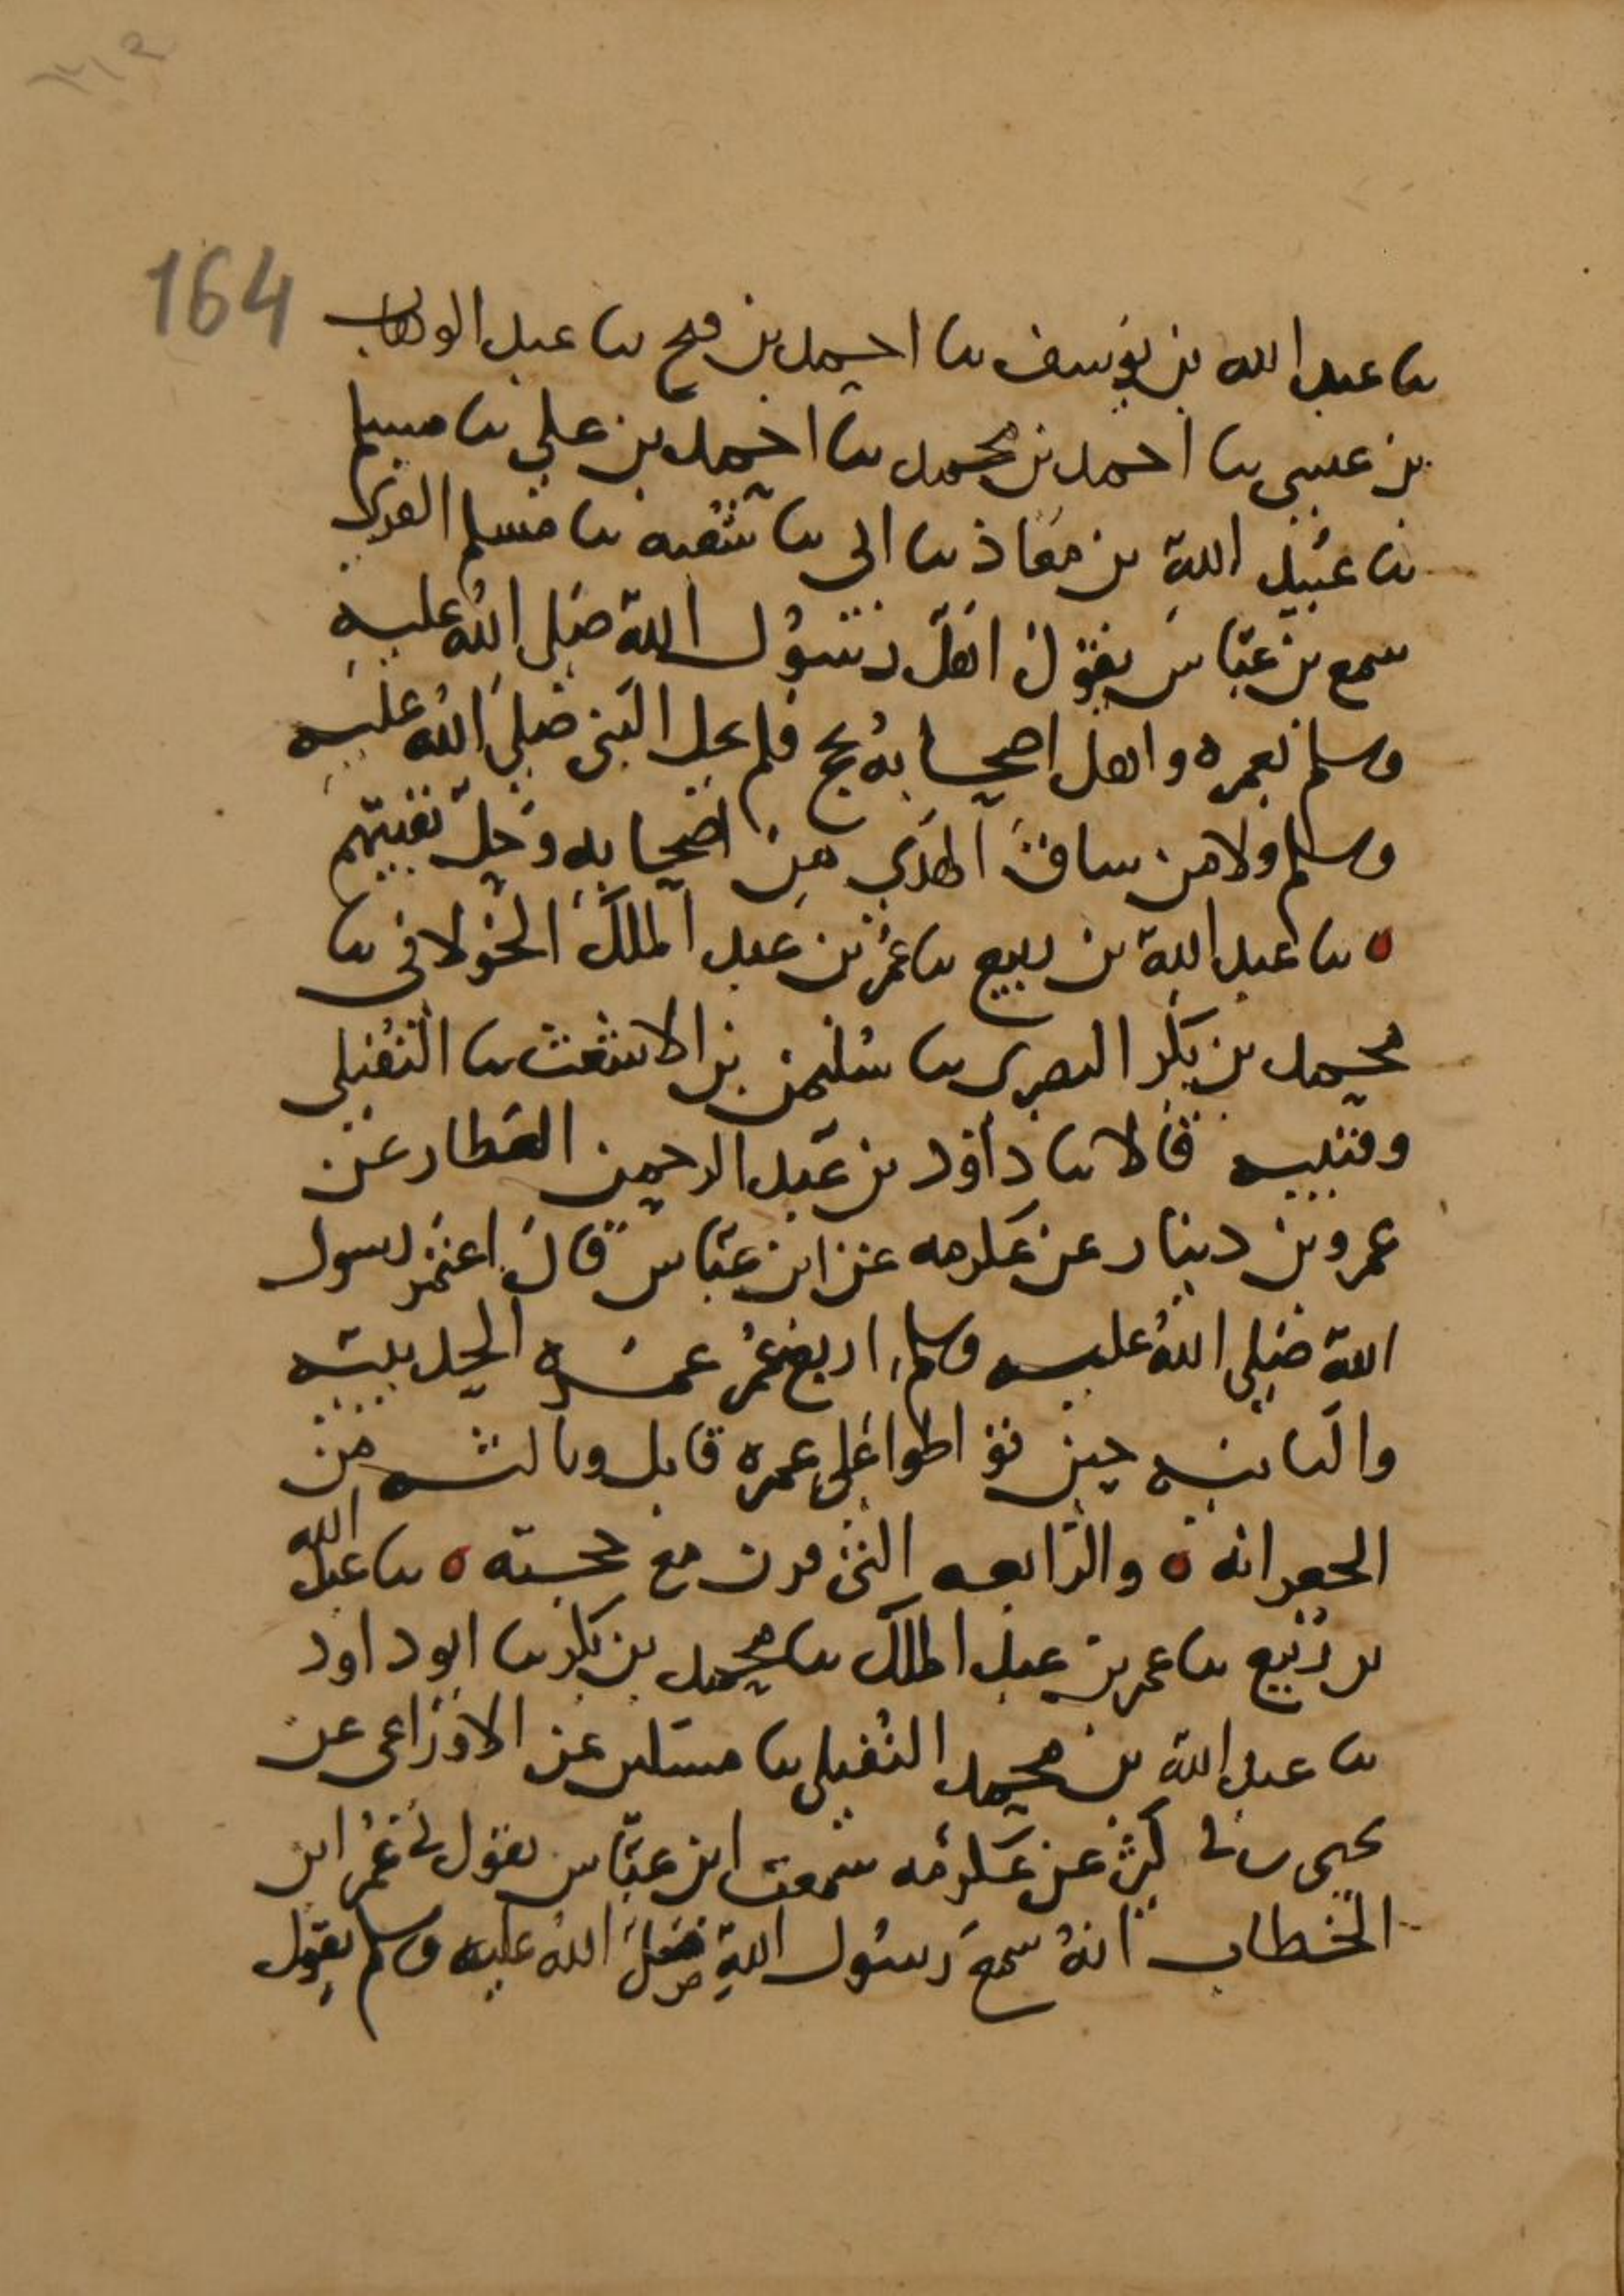 164
ثنا عبد الله بن يوسف ثنا احمد بن فتح ثنا عبد الوهاب
بن عيسى ثنا احمد بن محمد ثنا احمد بن علي ثنا مسلم
ثنا عبيد الله بن معاذ ثنا ابي ثنا شعبه ثنا مسلم القري
سمع بن عباس يقول اهل رسول الله صلى الله عليه
وسلم بعمره واهل اصحابه بحج فلم يحل النبي صلى الله عليه
وسلم ولا من ساق الهدي من اصحابه وحل بقيتهم
ه ثنا عبد الله بن ربيع ثنا عمر بن عبد الملك الخولاني ثنا
محمد بن بكر البصري ثنا سليمن بن الاشعث ثنا النفيلي
وقتيبه قالا ثنا داود بن عبد الرحمن العطار عن
عمرو بن دينار عن عكرمه عن ابن عباس قال اعتمر رسول
الله صلى الله عليه وسلم اربع عمر عمره الحديبيه
والثانيه حين تواطوا على عمره قابل وثالثه من
الجعرانه ه والرابعه التي قرن مع حجته ه ثنا عبد الله
بن ربيع ثنا عمر بن عبد الملك ثنا محمد بن بكر ثنا ابو داود
ثنا عبد الله بن محمد النفيلي ثنا مسكين عن الاوزاعي عن
يحيى بن ابي كثير عن عكرمه سمعت ابن عباس يقول ني عمر ابن
الخطاب انه سمع رسول الله صلى الله عليه وسلم يقول